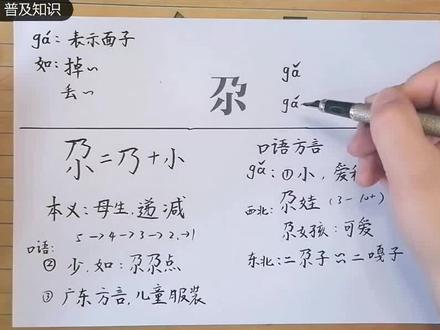 普及知识
gá: 表示面子
如: 掉~
丢~
尕
gǎ
gá
尕=乃+小
本义: 母生,递减
5→4→3→2→1
口语:
② 少,如: 尕尕点
③ 广东方言,儿童服装
口语方言
gǎ: ①小, 爱
西北: 尕娃 (3-10+)
尕女孩: 可爱
东北: 二尕子 二嘎子